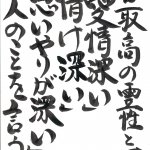 最高の霊性と
愛情深い
情け深い
思いやりが深い
人のことを言う